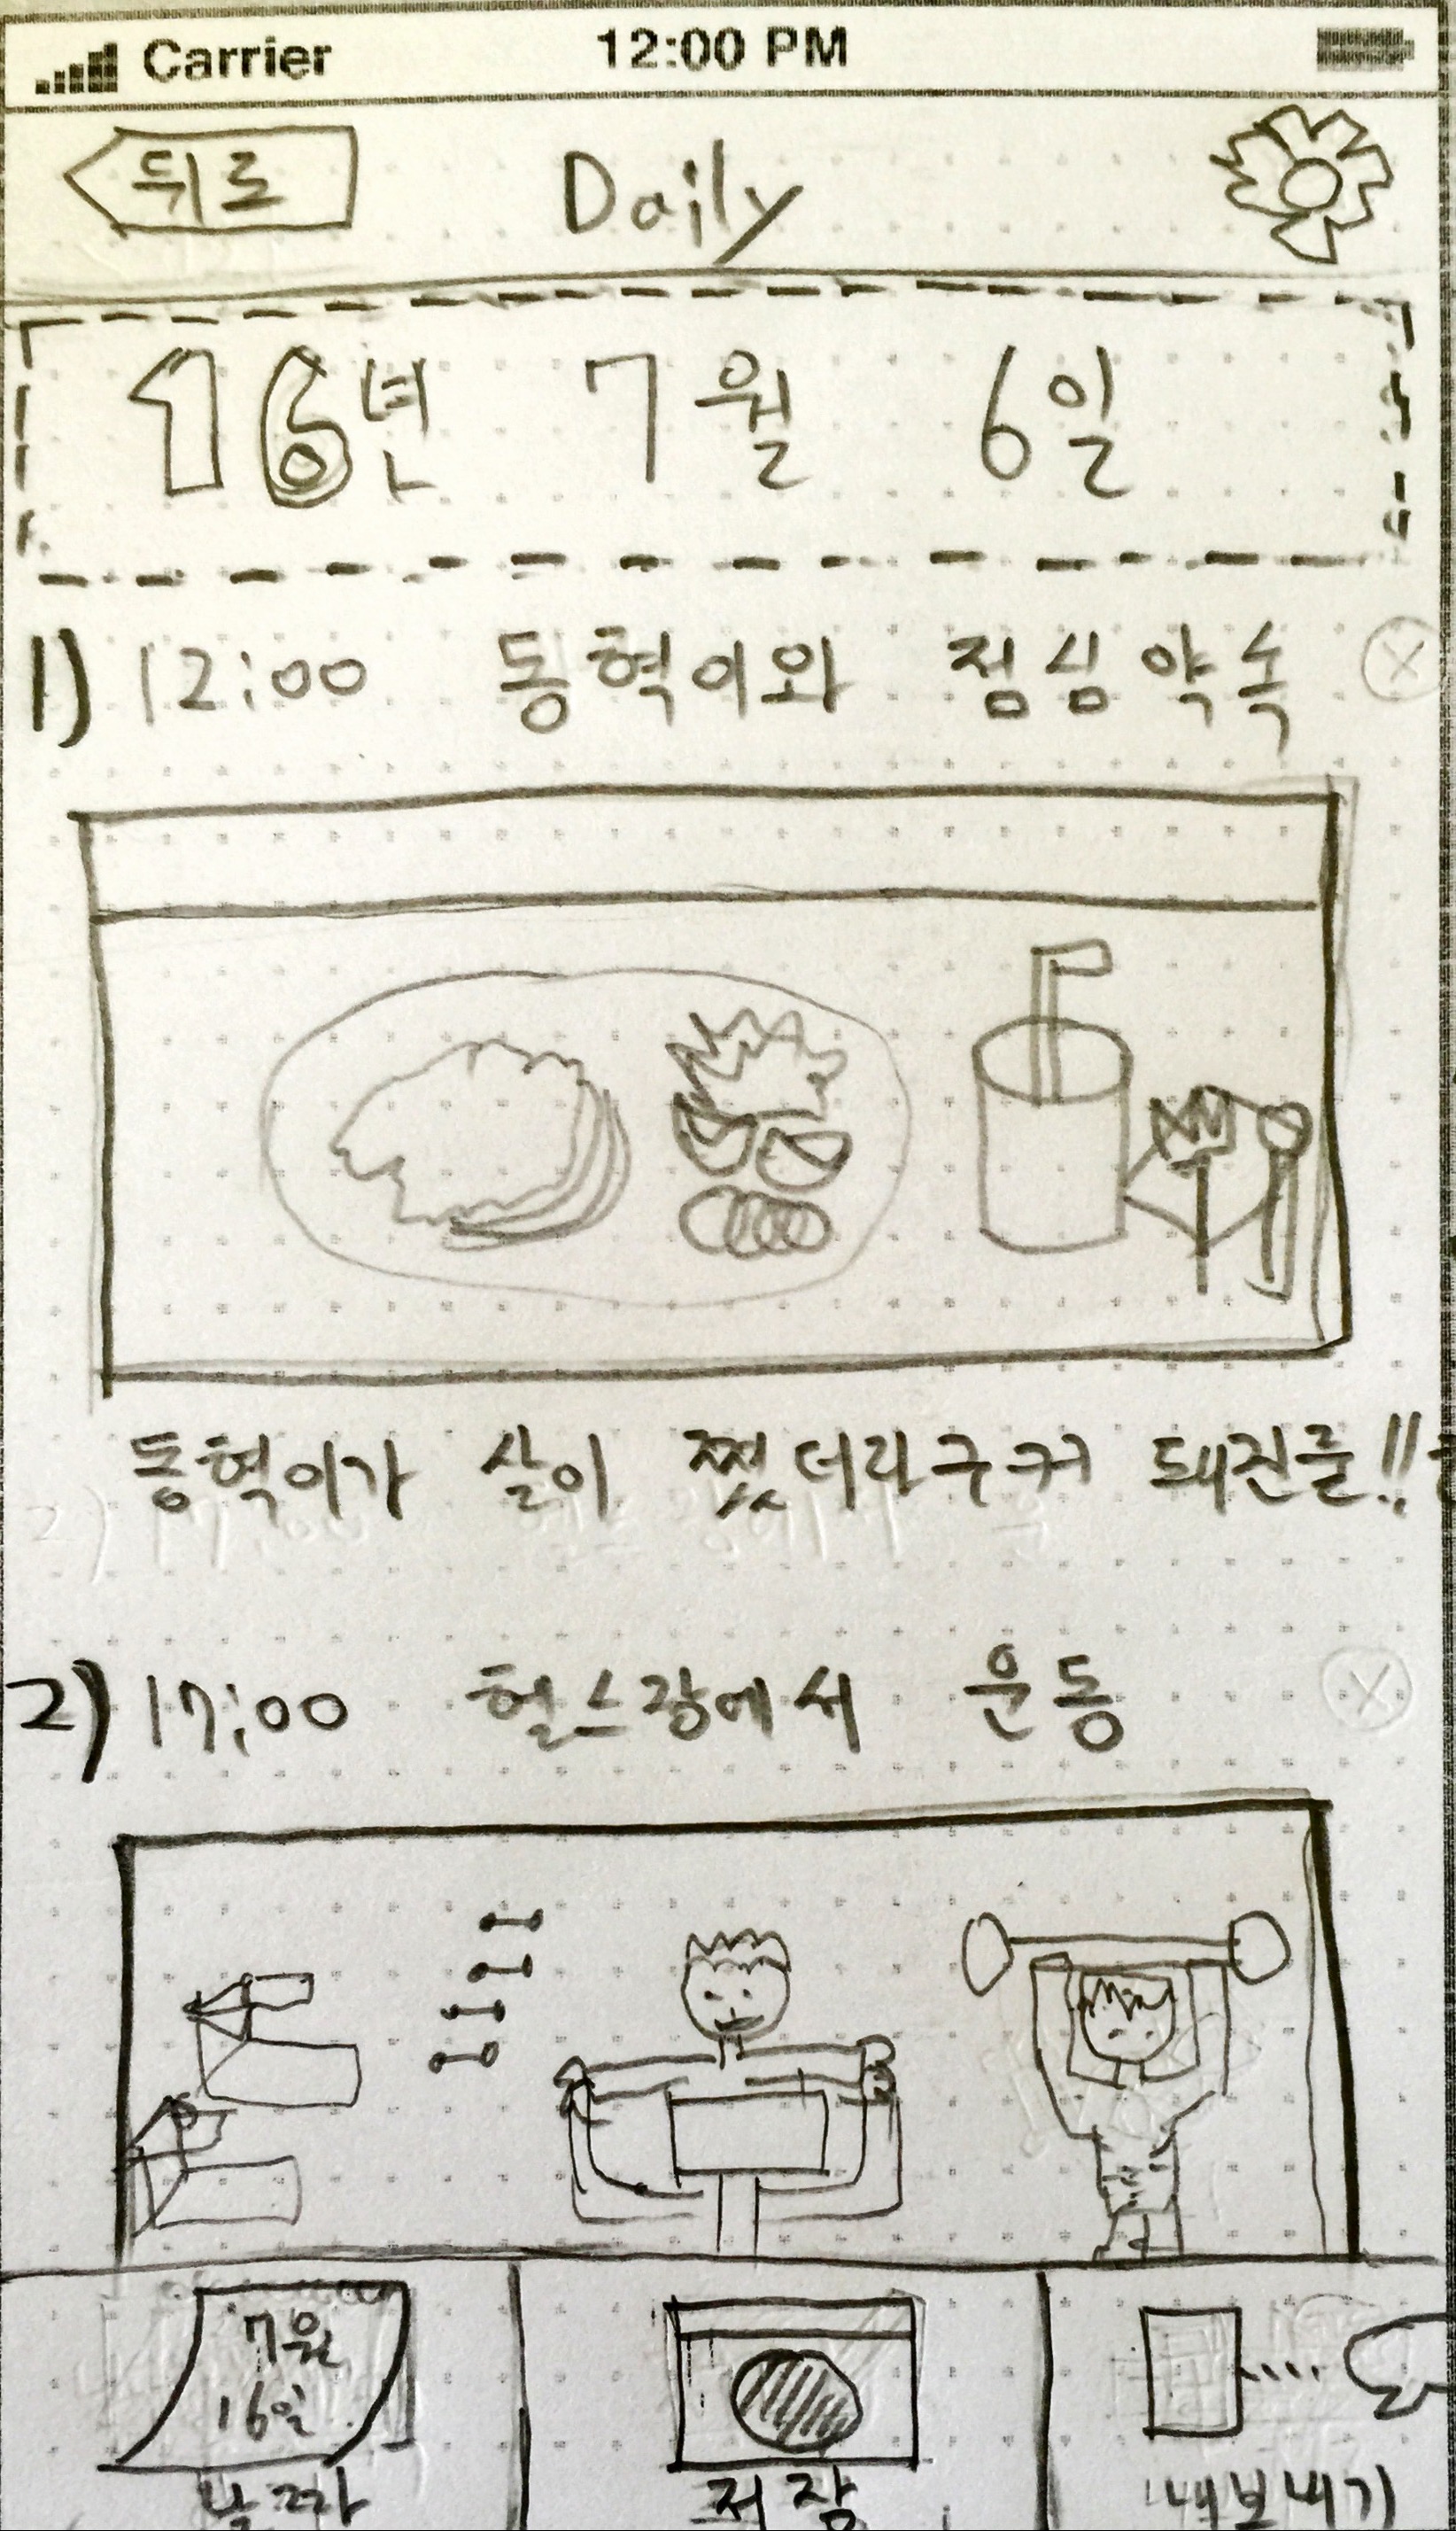 Carrier 12:00 PM
뒤로 Daily
16년 7월 6일
1) 12:00 동혁이와 점심약속 X
동혁이가 살이 쪘더라구 돼진줄!!
2) 17:00 헬스장에서 운동 X
7월
16일
날짜 저장 내보내기